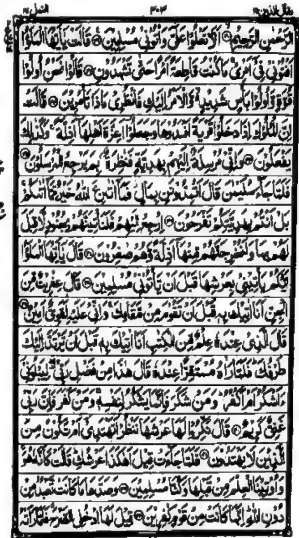 وقال الذین ۱۹ ۳۰۳ النمل ۲۷
الرَّحْمٰنِ الرَّحِيْمِ ۝ اَلَّا تَعْلُوْا عَلَيَّ وَاْتُوْنِيْ مُسْلِمِيْنَ ۝ قَالَتْ يٰۤاَيُّهَا الْمَلَؤُا
اَفْتُوْنِيْ فِيْۤ اَمْرِيْ مَا كُنْتُ قَاطِعَةً اَمْرًا حَتّٰى تَشْهَدُوْنِ ۝ قَالُوْا نَحْنُ اُولُوْا
قُوَّةٍ وَّاُولُوْا بَاْسٍ شَدِيْدٍ وَّالْاَمْرُ اِلَيْكِ فَانْظُرِيْ مَاذَا تَاْمُرِيْنَ ۝ قَالَتْ
اِنَّ الْمُلُوْكَ اِذَا دَخَلُوْا قَرْيَةً اَفْسَدُوْهَا وَجَعَلُوْۤا اَعِزَّةَ اَهْلِهَاۤ اَذِلَّةً وَكَذٰلِكَ
يَفْعَلُوْنَ ۝ وَاِنِّيْ مُرْسِلَةٌ اِلَيْهِمْ بِهَدِيَّةٍ فَنٰظِرَةٌۢ بِمَ يَرْجِعُ الْمُرْسَلُوْنَ ۝
فَلَمَّا جَآءَ سُلَيْمٰنَ قَالَ اَتُمِدُّوْنَنِ بِمَالٍ فَمَاۤ اٰتٰىنِۦَ اللّٰهُ خَيْرٌ مِّمَّاۤ اٰتٰىكُمْ
بَلْ اَنْتُمْ بِهَدِيَّتِكُمْ تَفْرَحُوْنَ ۝ اِرْجِعْ اِلَيْهِمْ فَلَنَاْتِيَنَّهُمْ بِجُنُوْدٍ لَّا قِبَلَ
لَهُمْ بِهَا وَلَنُخْرِجَنَّهُمْ مِّنْهَاۤ اَذِلَّةً وَّهُمْ صٰغِرُوْنَ ۝ قَالَ يٰۤاَيُّهَا الْمَلَؤُا
اَيُّكُمْ يَاْتِيْنِيْ بِعَرْشِهَا قَبْلَ اَنْ يَّاْتُوْنِيْ مُسْلِمِيْنَ ۝ قَالَ عِفْرِيْتٌ مِّنَ
الْجِنِّ اَنَا اٰتِيْكَ بِهٖ قَبْلَ اَنْ تَقُوْمَ مِنْ مَّقَامِكَ وَاِنِّيْ عَلَيْهِ لَقَوِيٌّ اَمِيْنٌ ۝
قَالَ الَّذِيْ عِنْدَهٗ عِلْمٌ مِّنَ الْكِتٰبِ اَنَا اٰتِيْكَ بِهٖ قَبْلَ اَنْ يَّرْتَدَّ اِلَيْكَ
طَرْفُكَ فَلَمَّا رَاٰهُ مُسْتَقِرًّا عِنْدَهٗ قَالَ هٰذَا مِنْ فَضْلِ رَبِّيْ لِيَبْلُوَنِيْۤ
ءَاَشْكُرُ اَمْ اَكْفُرُ وَمَنْ شَكَرَ فَاِنَّمَا يَشْكُرُ لِنَفْسِهٖ وَمَنْ كَفَرَ فَاِنَّ رَبِّيْ
غَنِيٌّ كَرِيْمٌ ۝ قَالَ نَكِّرُوْا لَهَا عَرْشَهَا نَنْظُرْ اَتَهْتَدِيْۤ اَمْ تَكُوْنُ مِنَ
الَّذِيْنَ لَا يَهْتَدُوْنَ ۝ فَلَمَّا جَآءَتْ قِيْلَ اَهٰكَذَا عَرْشُكِ قَالَتْ كَاَنَّهٗ هُوَ
وَاُوْتِيْنَا الْعِلْمَ مِنْ قَبْلِهَا وَكُنَّا مُسْلِمِيْنَ ۝ وَصَدَّهَا مَا كَانَتْ تَّعْبُدُ مِنْ
دُوْنِ اللّٰهِ اِنَّهَا كَانَتْ مِنْ قَوْمٍ كٰفِرِيْنَ ۝ قِيْلَ لَهَا ادْخُلِي الصَّرْحَ فَلَمَّا رَاَتْهُ